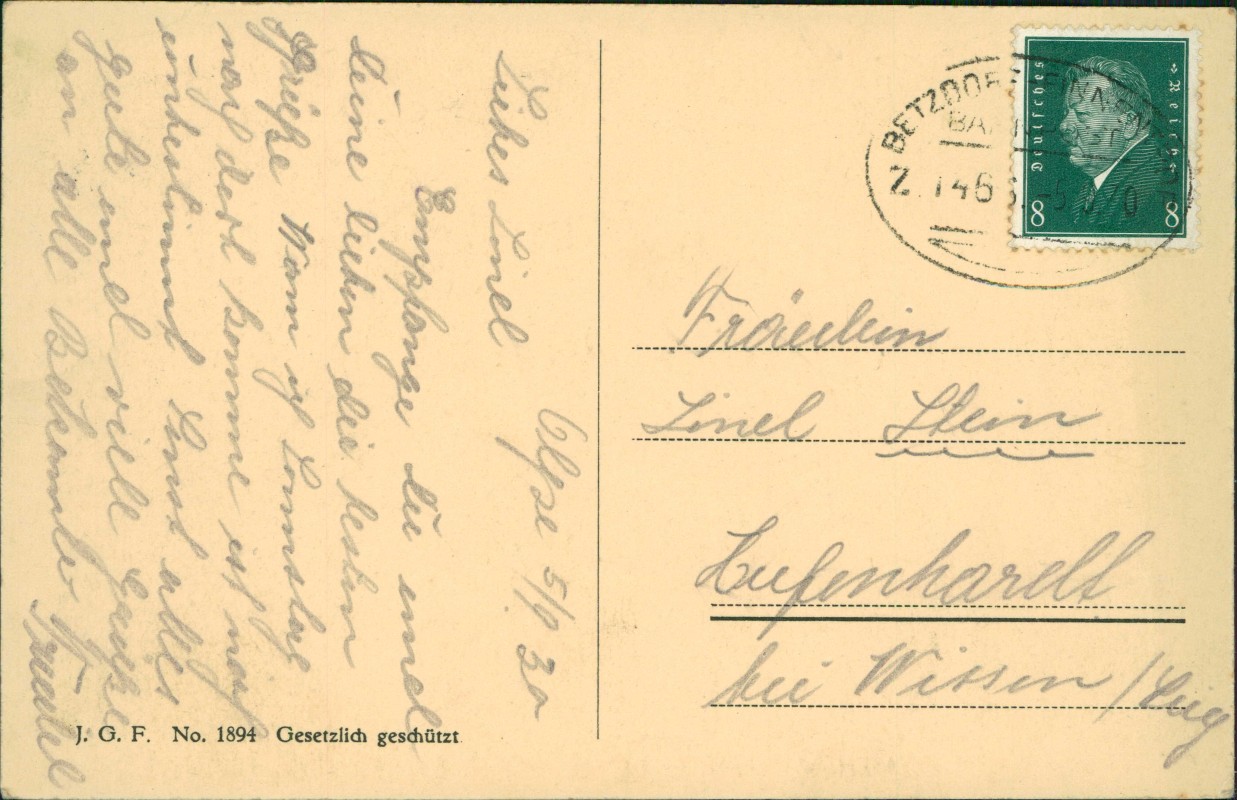 Olpe 5/9 30
Liebes Linel
Empfange du und
deine lieben die besten
Grüße Wann ich Sonntag
nach dort komme ist noch
unbestimmt Sonst alles
gute und viele Grüße
an alle Bekannte
BETZDORF
Z. 1463
Deutsches Reich
8 8
Fräulein
Linel Stein
Hufenhardt
bei Wissen /Sieg
J. G. F. No. 1894 Gesetzlich geschützt